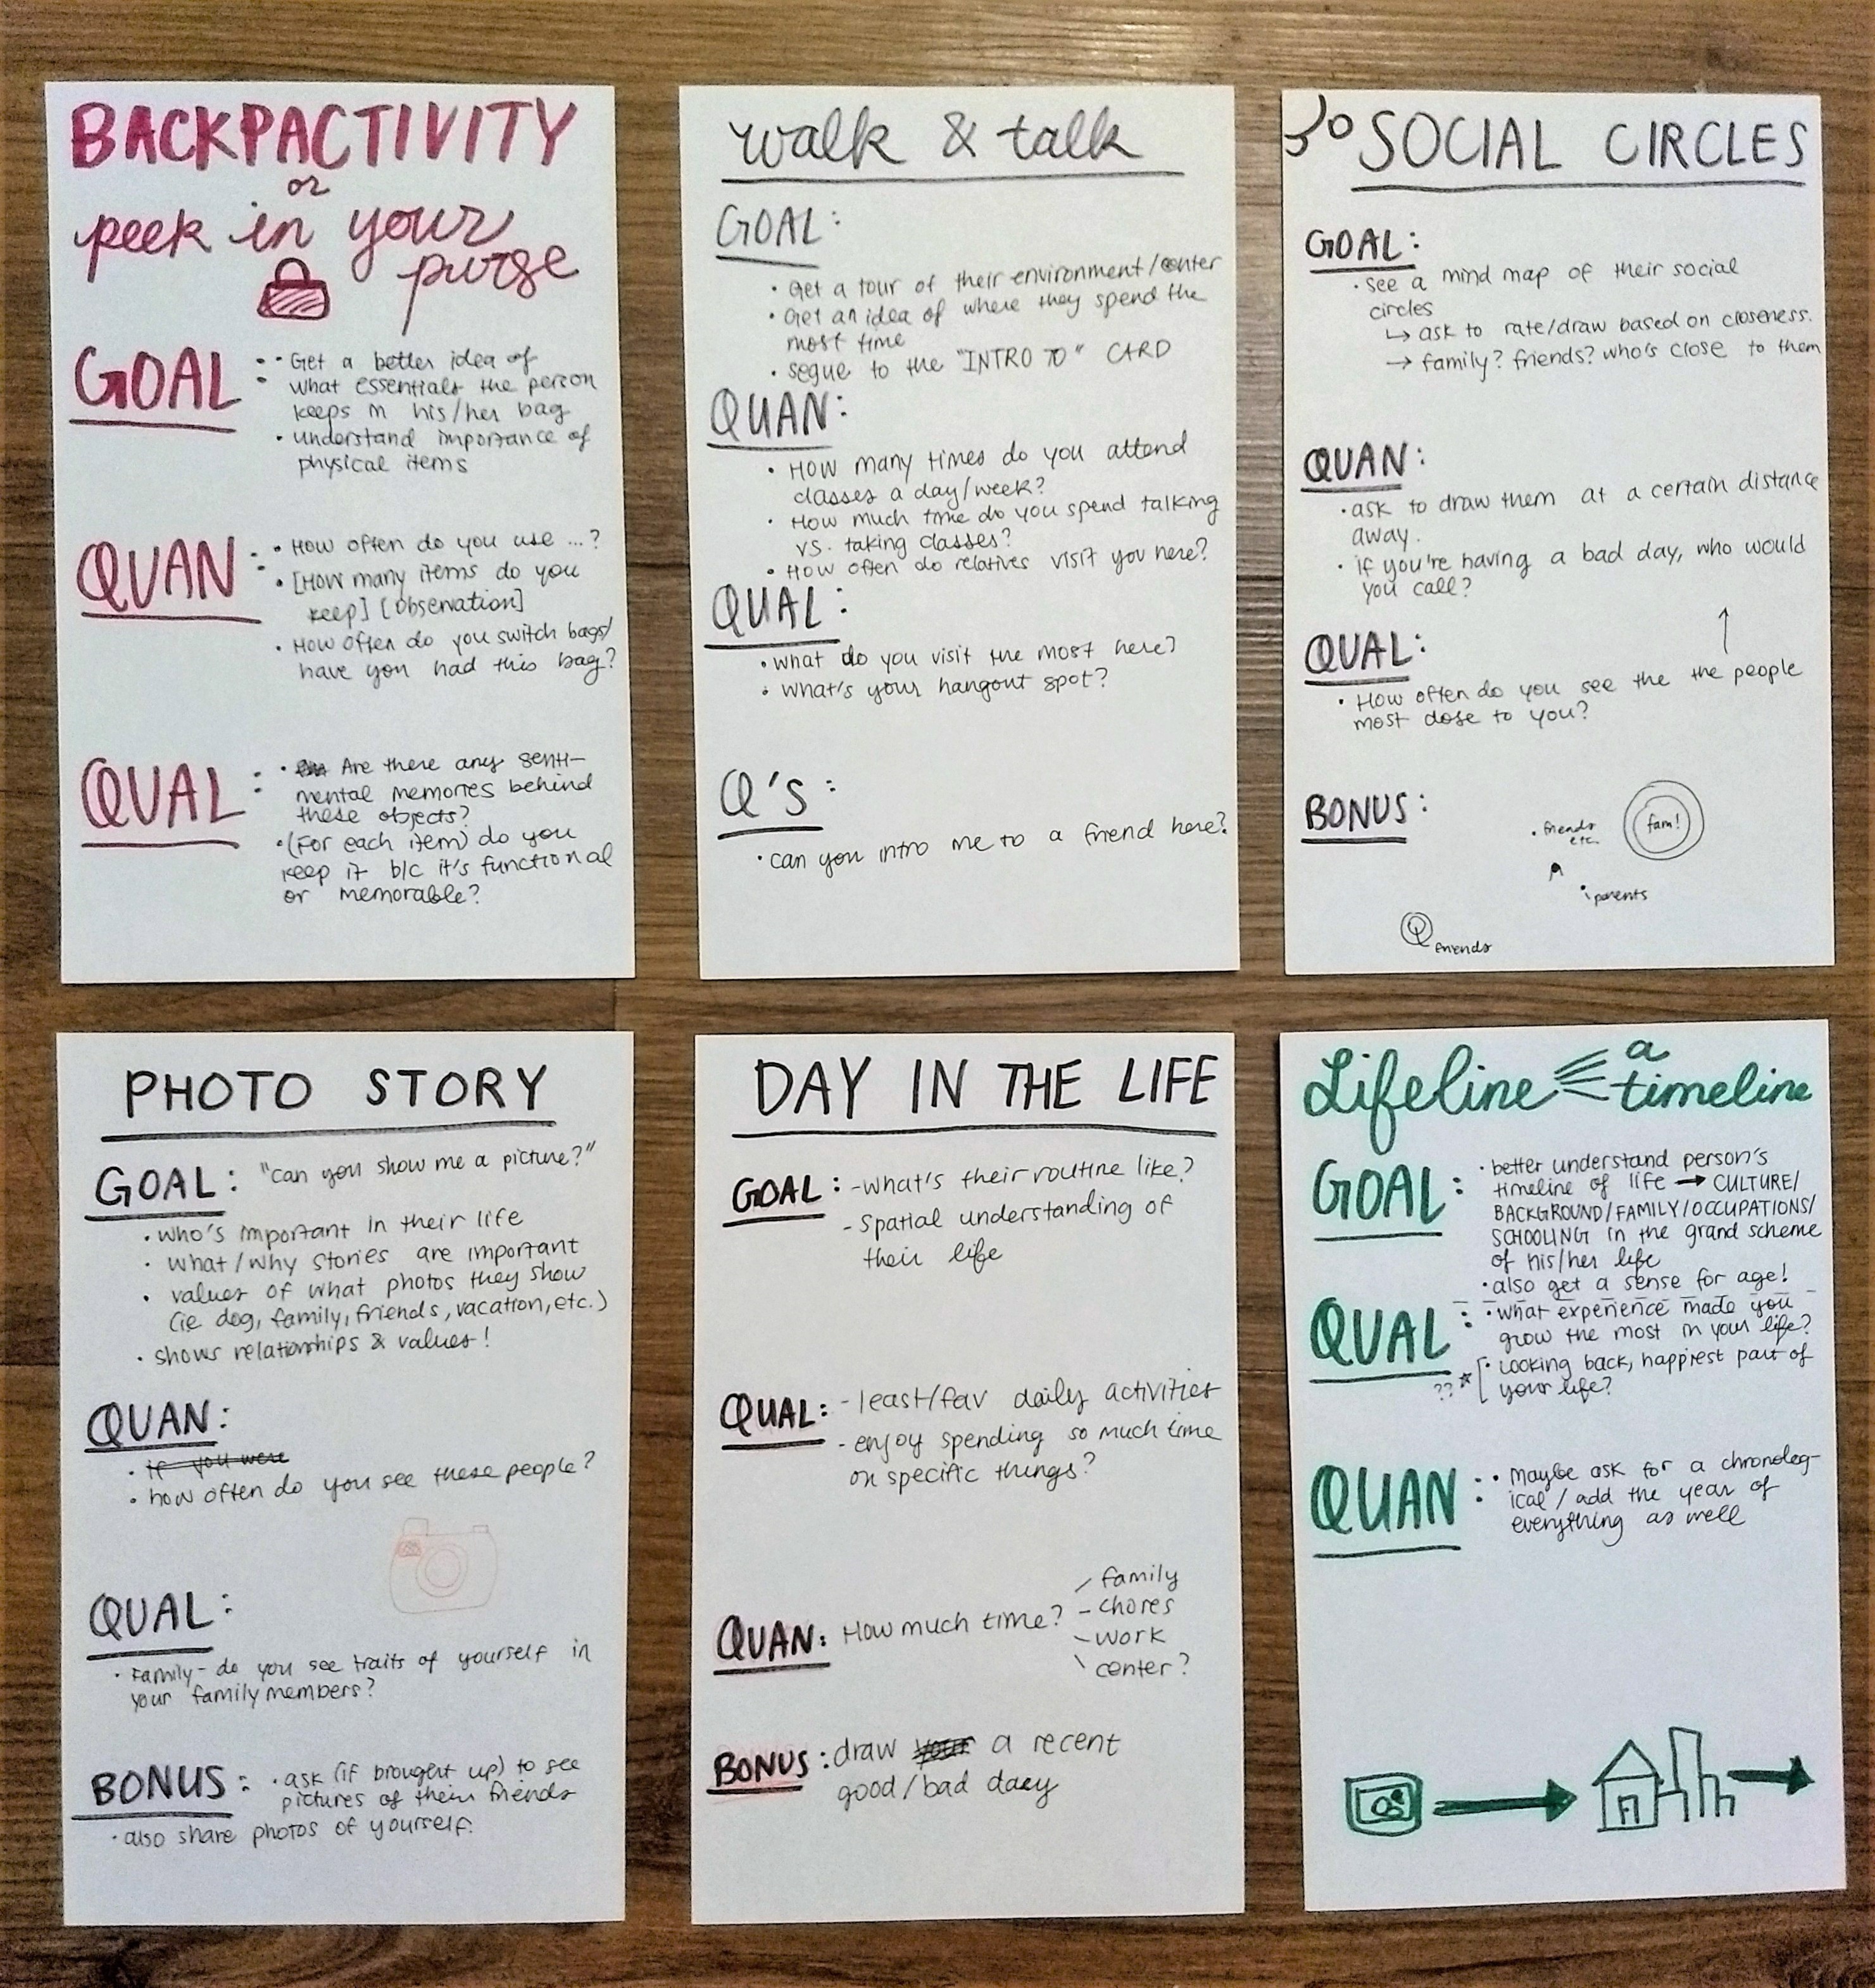 BACKPACTIVITY
or
peek in your
purse
GOAL :
· Get a better idea of
what essentials the person
keeps in his/her bag
· understand importance of
physical items
QUAN :
· How often do you use ...?
· [How many items do you
keep] [observation]
· How often do you switch bags/
have you had this bag?
QUAL :
· Are there any senti-
mental memories behind
these objects?
· (For each item) do you
keep it b/c it's functional
or memorable?
walk & talk
GOAL :
· Get a tour of their environment/center
· Get an idea of where they spend the
most time
· segue to the "INTRO TO" CARD
QUAN :
· How many times do you attend
classes a day/week?
· How much time do you spend talking
vs. taking classes?
· How often do relatives visit you here?
QUAL :
· what do you visit the most here?
· what's your hangout spot?
Q'S :
· can you intro me to a friend here?
SOCIAL CIRCLES
GOAL :
· see a mind map of their social
circles
↳ ask to rate/draw based on closeness.
→ family? friends? who's close to them
QUAN :
· ask to draw them at a certain distance
away.
· if you're having a bad day, who would
you call?
QUAL :
· How often do you see the the people
most close to you?
BONUS :
fam!
· friends
etc.
· parents
friends
PHOTO STORY
GOAL : "can you show me a picture?"
· who's important in their life
· what/why stories are important
· values of what photos they show
(ie dog, family, friends, vacation, etc.)
· shows relationships & values!
QUAN :
· if you were
· how often do you see these people?
QUAL :
· Family - do you see traits of yourself in
your family members?
BONUS : · ask (if brought up) to see
pictures of their friends
· also share photos of yourself.
DAY IN THE LIFE
GOAL : - what's their routine like?
- Spatial understanding of
their life
QUAL : - least/fav daily activities
- enjoy spending so much time
on specific things?
QUAN : How much time?
family
- chores
- work
center?
BONUS : draw your a recent
good/bad day
Lifeline a
timeline
GOAL :
· better understand person's
timeline of life → CULTURE/
BACKGROUND/FAMILY/OCCUPATIONS/
SCHOOLING in the grand scheme
of his/her life
· also get a sense for age!
QUAL :
· what experience made you
grow the most in your life?
?? ★ [ · Looking back, happiest part of
your life?
QUAN :
· Maybe ask for a chronolog-
ical/add the year of
everything as well